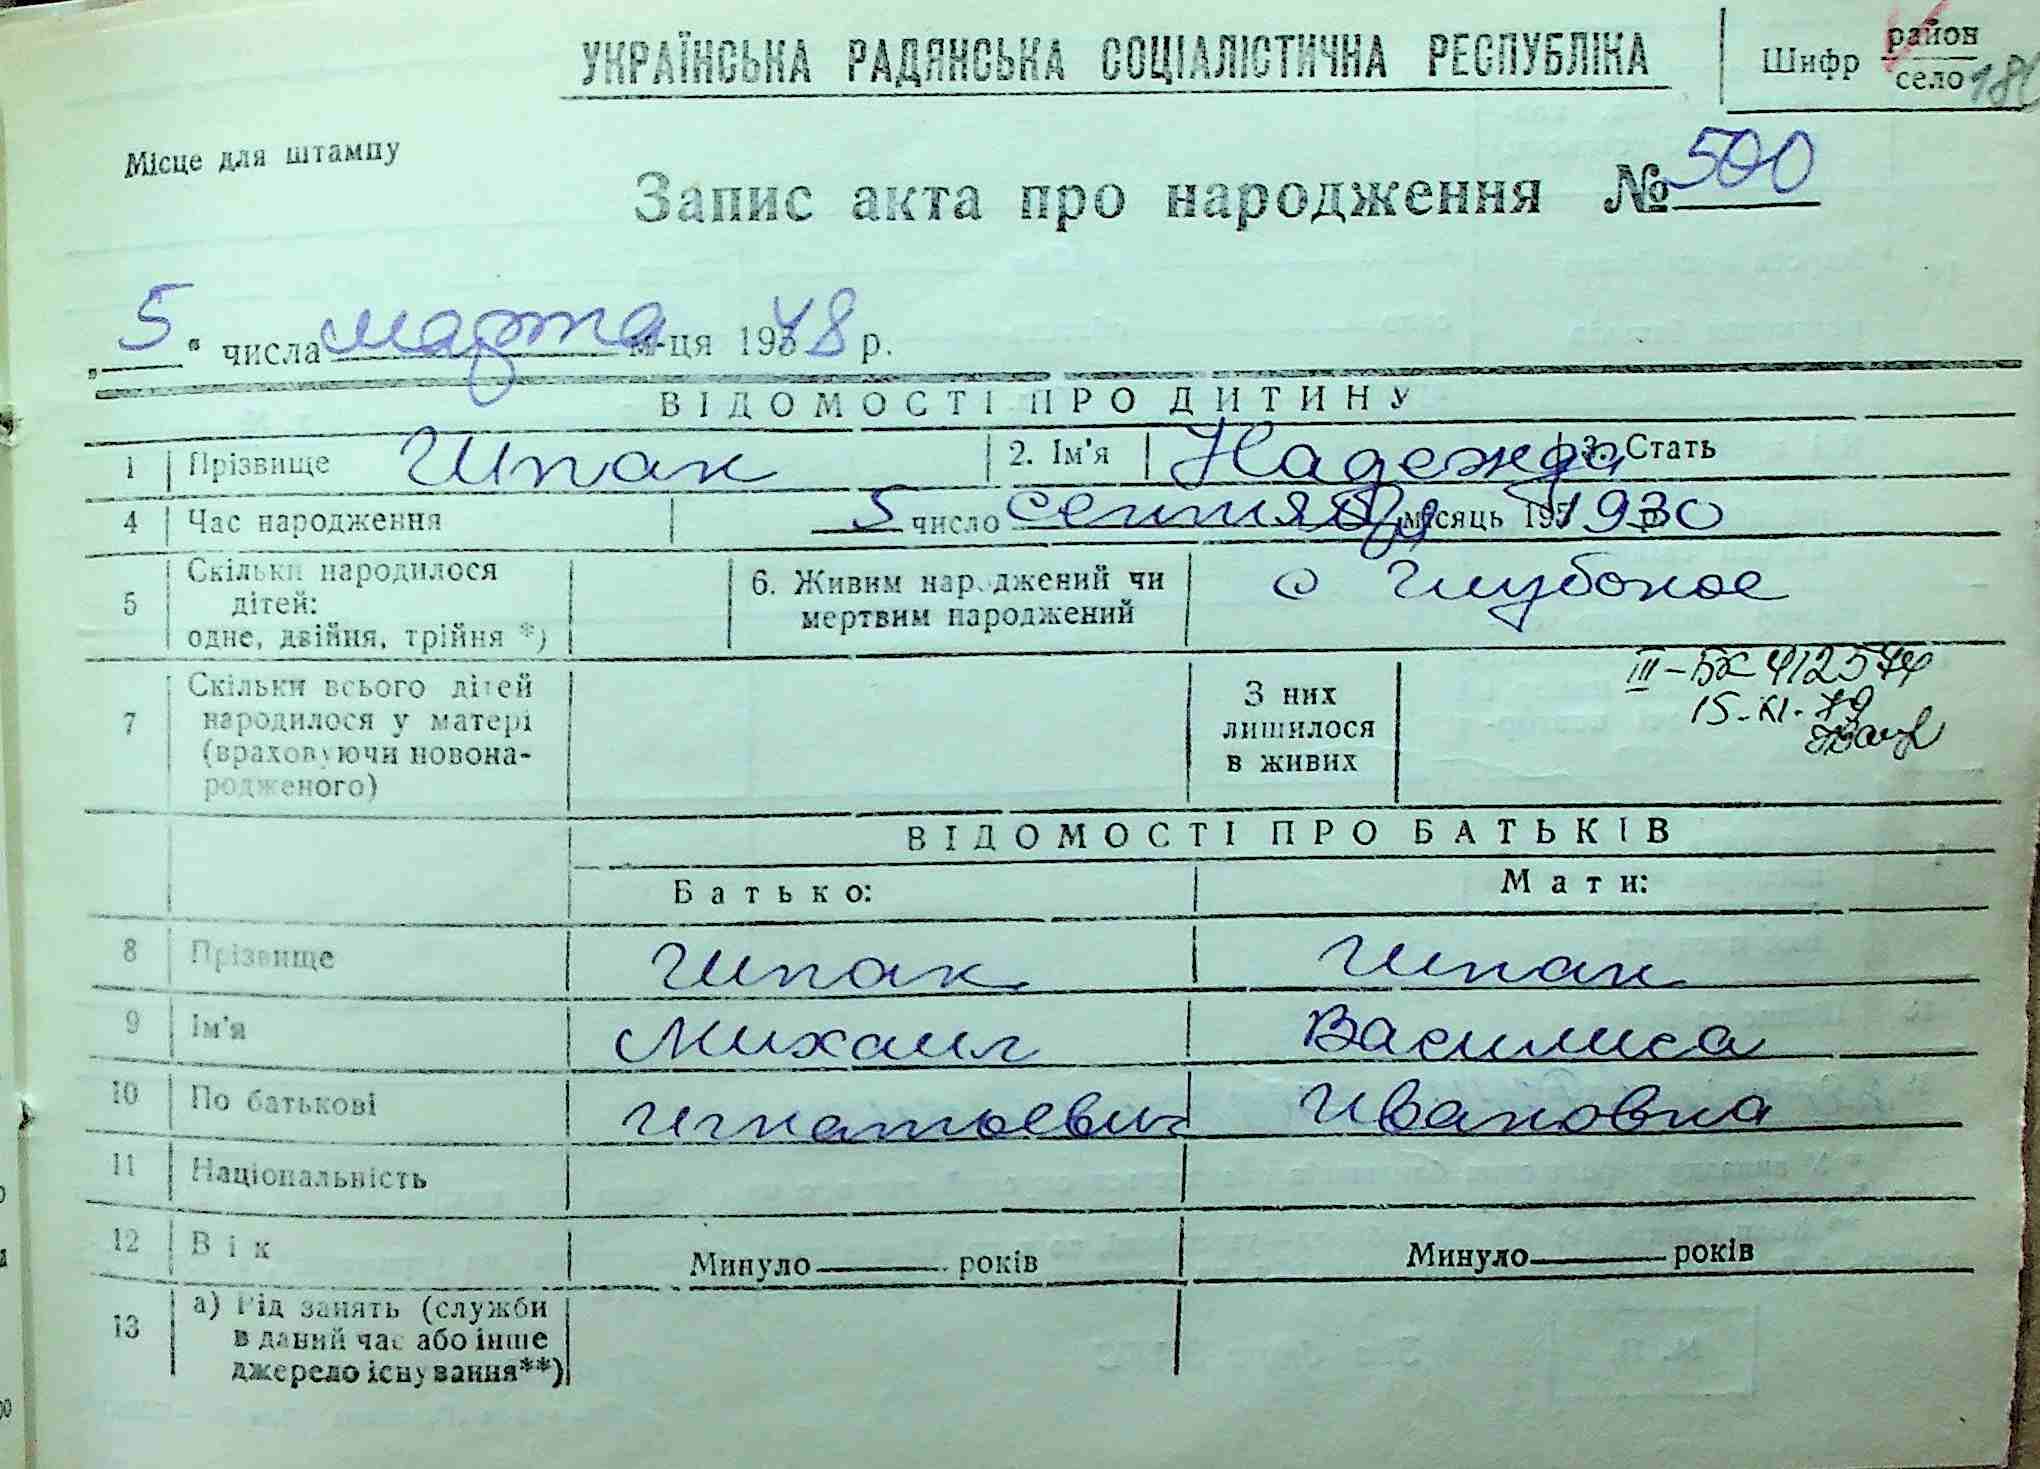 УКРАЇНСЬКА РАДЯНСЬКА СОЦІАЛІСТИЧНА РЕСПУБЛІКА
Шифр район
село 18
Місце для штампу
Запис акта про народження № 500
„ 5 " числа марта м-ця 1948 р.
ВІДОМОСТІ ПРО ДИТИНУ
1 Прізвище Шпак 2. Ім'я Надежда 3. Стать
4 Час народження 5 число сентября місяць 195 1930
5 Скільки народилося
дітей:
одне, двійня, трійня *)
6. Живим народжений чи
мертвим народжений
с Глубокое
7 Скільки всього дітей
народилося у матері
(враховуючи новона-
родженого)
З них
лишилося
в живих
III-БК 412574
15-XI-79
ВІДОМОСТІ ПРО БАТЬКІВ
Батько: Мати:
8 Прізвище Шпак Шпак
9 Ім'я Михаил Василиса
10 По батькові Игнатьевич Ивановна
11 Національність
12 Вік Минуло років Минуло років
13 а) Рід занять (служби
в даний час або інше
джерело існування**)